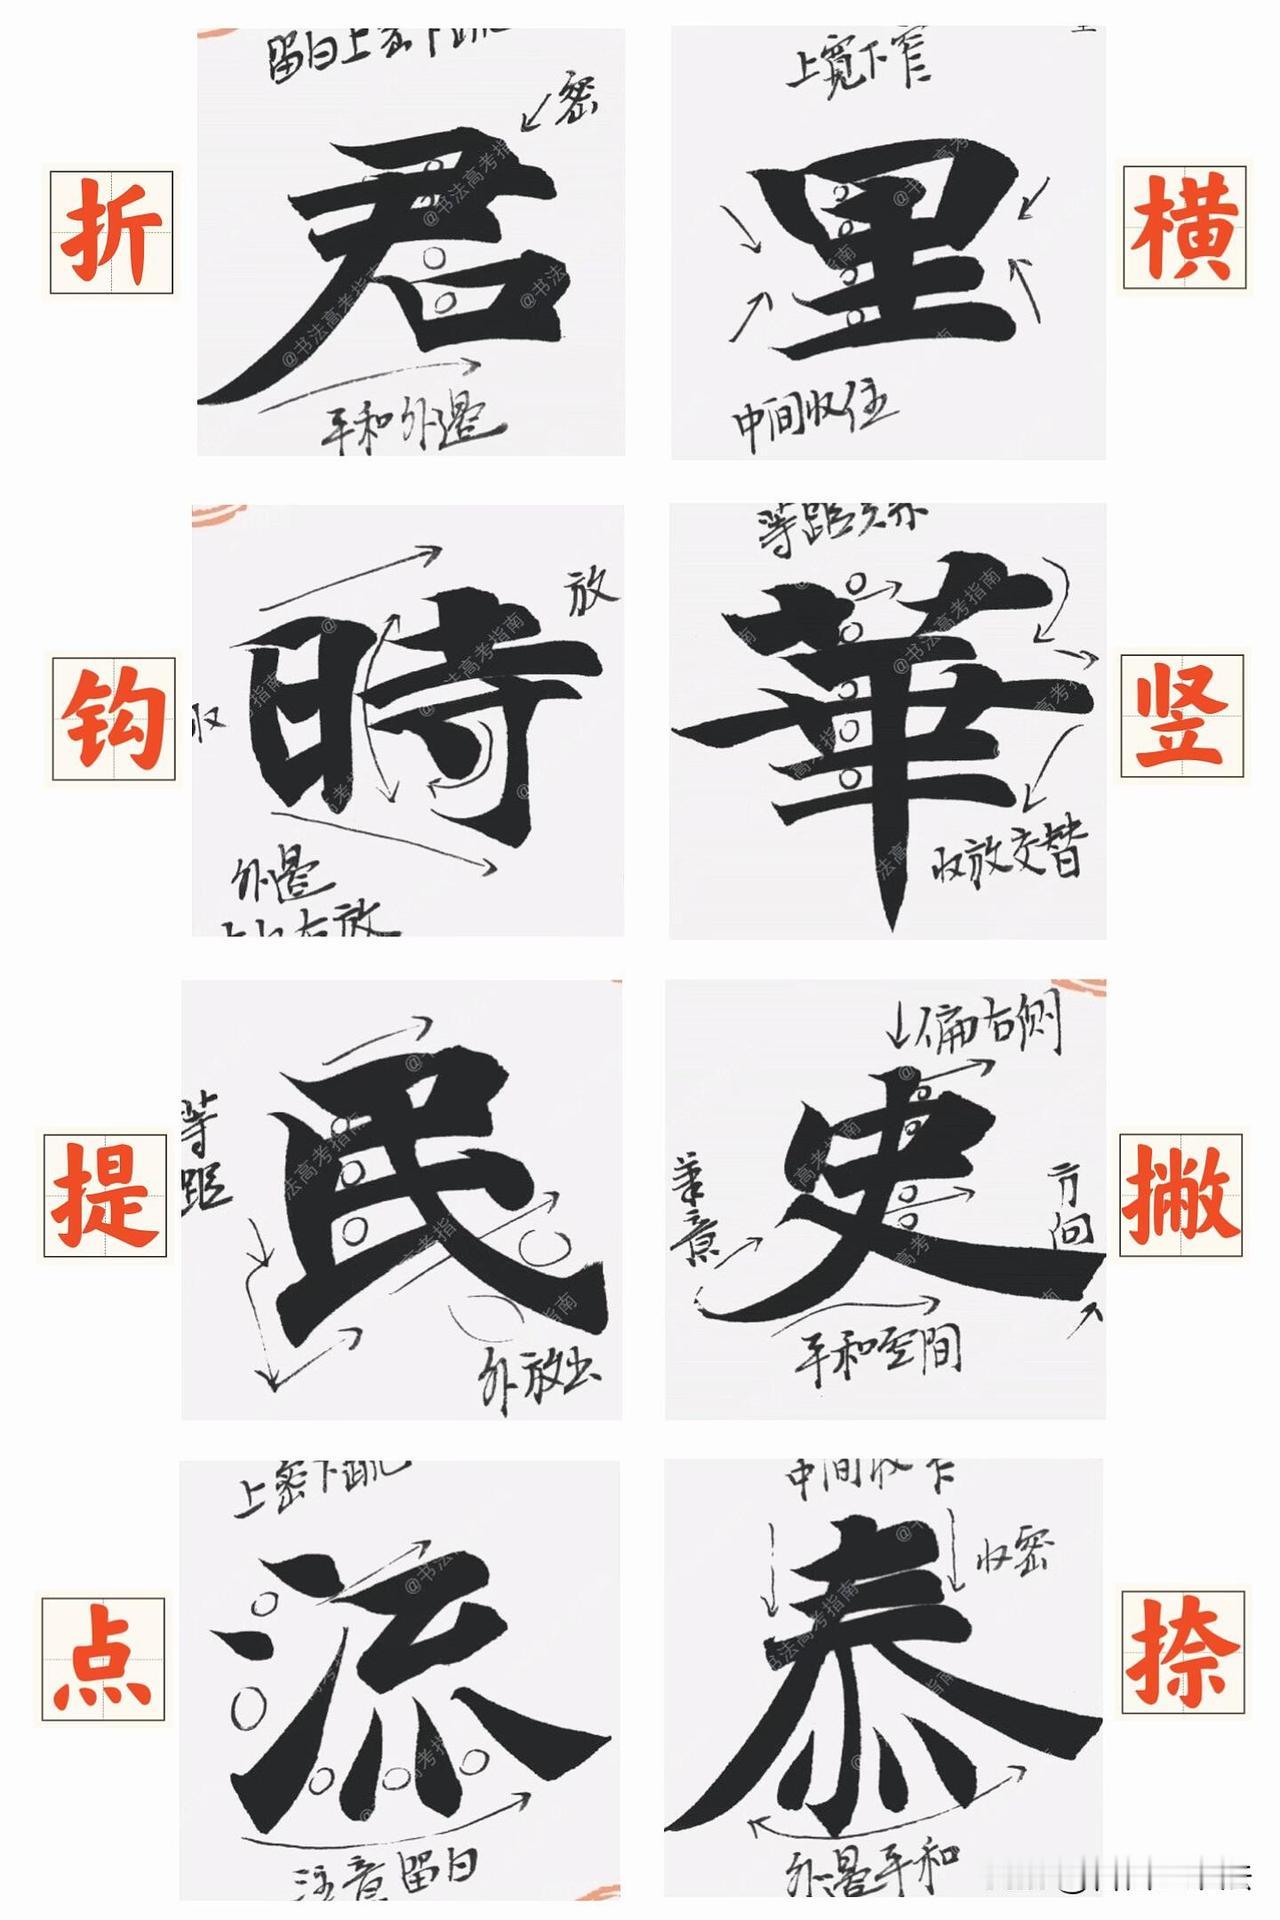 留白上密下疏
密
折
君
平和外邊
上宽下窄
里
横
中间收住
放
钩
時
收
外邊
等距关系
華
竖
收放交替
等
距
提
民
外放出
偏右侧
史
撇
方向
平和空间
上密下疏
点
流
注意留白
中间收
收密
泰
捺
外邊平和
@书法高考指南